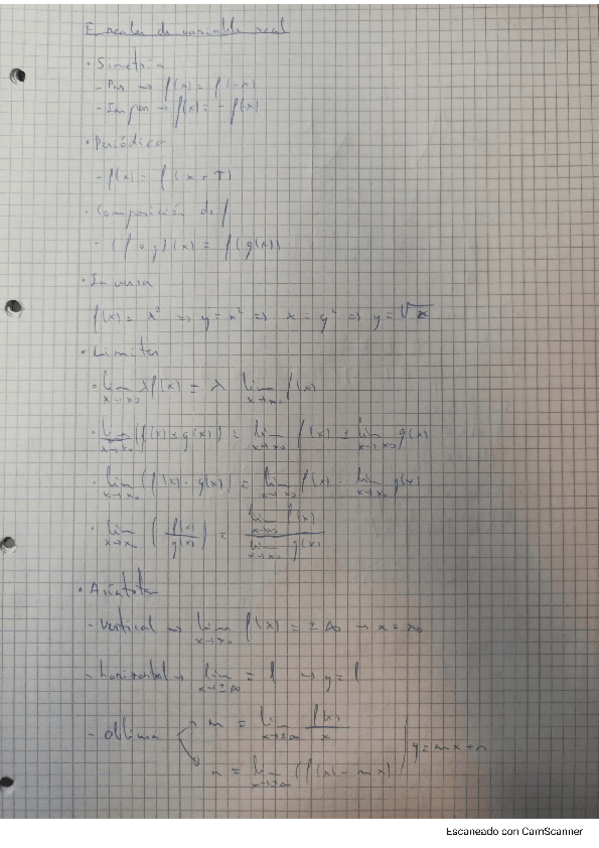 Escalar de variable real
· Simetría
- Par → f(x) = f(-x)
- Impar → f(x) = - f(x)
· Periódica
- f(x) = f(x + T)
· Composición de f
- (f o g)(x) = f(g(x))
· Inversa
f(x) = x² ⇒ y = x² ⇒ x = y² ⇒ y = √x
· Límites
· lim x→x₀ λf(x) = λ lim x→x₀ f(x)
· lim x→x₀ (f(x) ± g(x)) = lim x→x₀ f(x) ± lim x→x₀ g(x)
· lim x→x₀ (f(x) · g(x)) = lim x→x₀ f(x) · lim x→x₀ g(x)
· lim x→x₀ (f(x)/g(x)) = lim x→x₀ f(x) / lim x→x₀ g(x)
- Vertical → lim x→x₀ f(x) = ±∞ → x = x₀
- horizontal → lim x→±∞ = l → y = l
- Oblicua
m = lim x→±∞ f(x)/x
y = mx + n
n = lim x→±∞ (f(x) - mx)
Escaneado con CamScanner